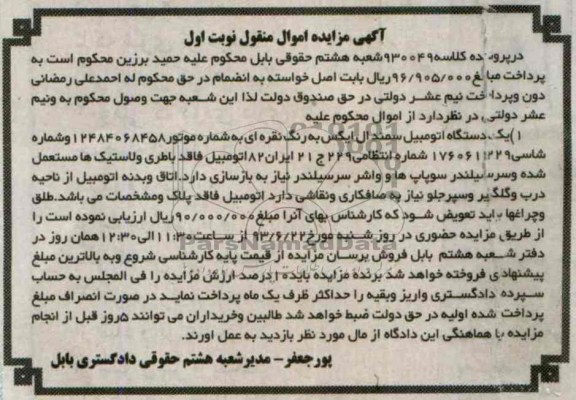 آگهی مزایده اموال منقول نوبت اول
درپرونده کلاسه ۹۳۰۰۴۹شعبه هشتم حقوقی بابل محکوم علیه حمید برزین محکوم است به
پرداخت مبلغ ۹۶/۹۰۵/۰۰۰ریال بابت اصل خواسته به انضمام در حق محکوم له احمدعلی رمضانی
دون وپرداخت نیم عشر دولتی در حق صندوق دولت لذا این شعبه جهت وصول محکوم به ونیم
عشر دولتی در نظردارد از اموال محکوم علیه
۱)یک دستگاه اتومبیل سمند ال ایکس به رنگ نقره ای به شماره موتور۱۲۴۸۴۰۶۸۴۵۸وشماره
شاسی شماره انتظامی ۲۲۹ج۲۱ ایران۸۲اتومبیل فاقد باطری ولاستیک ها مستعمل
شده وسرسیلندر سوپاپ ها و واشر سرسیلندر نیاز به بازسازی دارد.اتاق وبدنه اتومبیل از ناحیه
درب وگلگیر وسپرجلو نیاز به صافکاری ونقاشی دارد اتومبیل فاقد پلاک ومشخصات می باشد.طلق
وچراغها باید تعویض شود که کارشناس بهای آنرا مبلغ ۹۰/۰۰۰/۰۰۰ریال ارزیابی نموده است را
از طریق مزایده حضوری در روز شنبه مورخ۹۳/۶/۲۲ از ساعت۱۱:۳۰الی۱۲:۳۰همان روز در
دفتر شعبه هشتم بابل فروش برسان مزایده از قیمت پایه کارشناسی شروع وبه بالاترین مبلغ
پیشنهادی فروخته خواهد شد برنده مزایده باید۱۰درصد ارزش مزایده را فی المجلس به حساب
سپرده دادگستری واریز وبقیه را حداکثر ظرف یک ماه پرداخت نماید در صورت انصراف مبلغ
پرداخت شده اولیه در حق دولت ضبط خواهد شد طالبین وخریداران می توانند ۵روز قبل از انجام
مزایده با هماهنگی این دادگاه از مال مورد نظر بازدید به عمل اورند.
پورجعفر– مدیرشعبه هشتم حقوقی دادگستری بابل
ParsNamadData